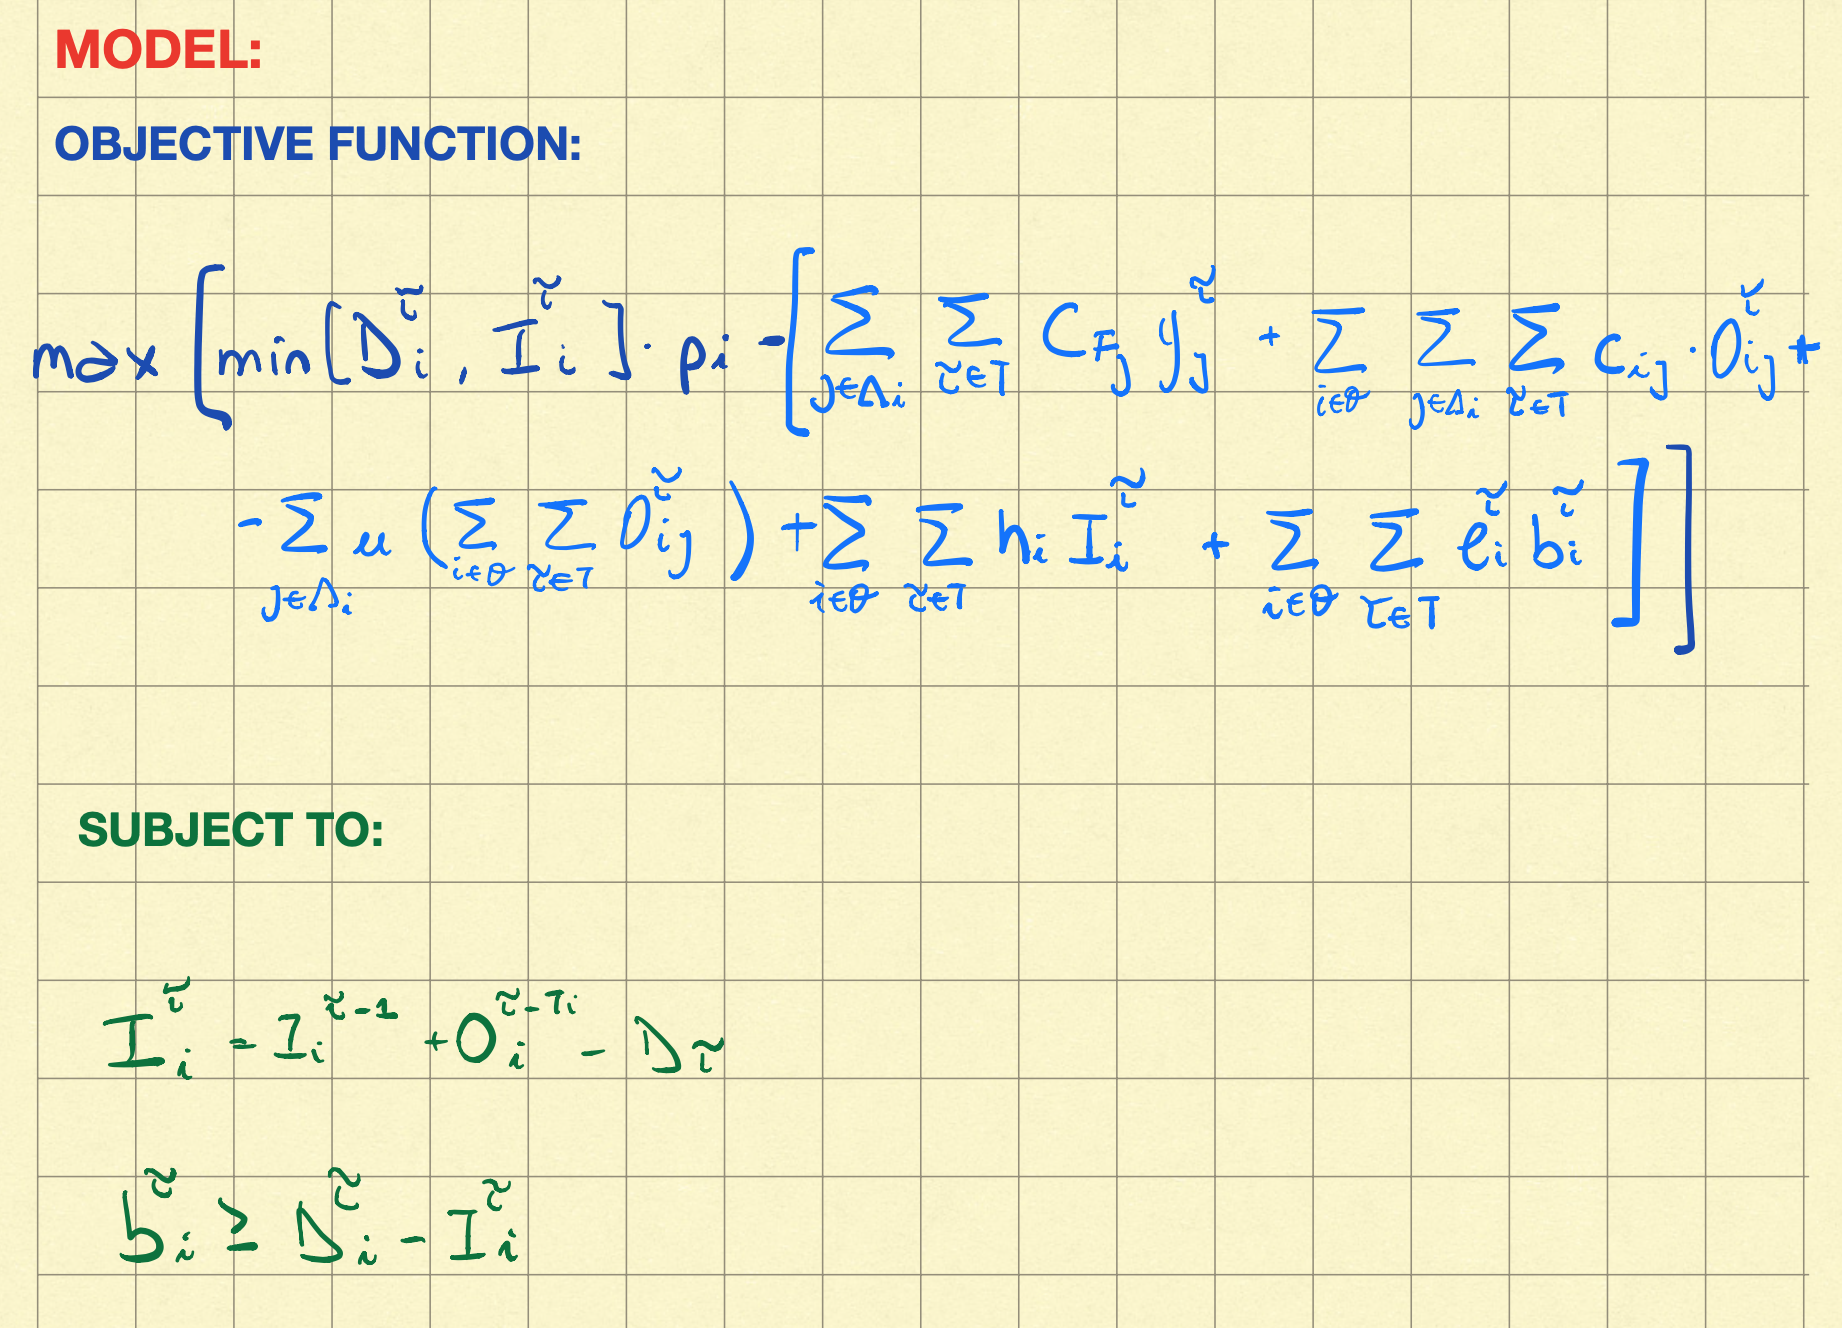 MODEL:
OBJECTIVE FUNCTION:
max [ min [ D_i^τ , I_i^τ ] · p_i - [ Σ_{j∈Δ_i} Σ_{τ∈T} C_{Fj} y_j^τ + Σ_{i∈θ} Σ_{j∈Δ_i} Σ_{τ∈T} c_{ij} · O_{ij}^τ +
- Σ_{j∈Δ_i} u ( Σ_{i∈θ} Σ_{τ∈T} O_{ij}^τ ) + Σ_{i∈θ} Σ_{τ∈T} h_i I_i^τ + Σ_{i∈θ} Σ_{τ∈T} e_i^τ b_i^τ ] ]
SUBJECT TO:
I_i^τ = I_i^{τ-1} + O_i^{τ-T_i} - D_τ
b_i^τ ≥ D_i^τ - I_i^τ